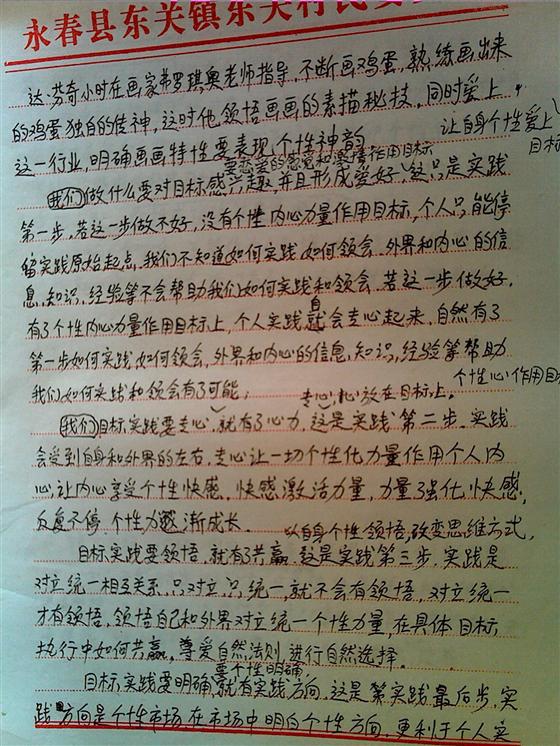 永春县东关镇东关村民委
达·芬奇小时在画家弗罗琪奥老师指导,不断画鸡蛋,熟练画出来
的鸡蛋独自的传神,这时他领悟画画的素描秘技,同时爱上
让自身个性爱上
目标
这一行业,明确画画特性要表现个性神韵
要恋爱的感觉和激情作用目标
我们做什么要对目标感兴趣,并且形成爱好,这只是实践
第一步,若这一步做不好,没有个性内心力量作用目标,个人只能停
留实践原始起点,我们不知道如何实践如何领会,外界和内心的信
息,知识,经验等不会帮助我们如何实践和领会,若这一步做好,
有了个性内心力量作用目标上,个人实践自就会走心起来,自然有了
第一步如何实践,如何领会,外界和内心的信息,知识,经验等帮助
我们如何实践和领会有了可能,
个性心作用目
走心,心放在目标上。
我们目标实践要走心,就有了心力,这是实践第二步,实践
会受到自身和外界的左右,走心让一切个性化力量作用个人内
心,让内心享受个性快感,快感激活力量,力量强化快感,
反复不停,个性力渐成长
以自身个性领悟,改变思维方式,
目标实践要领悟,就有了共赢,这是实践第三步,实践是
对立统一相互关系,只对立,只统一,就不会有领悟,对立统一
才有领悟,领悟自己和外界对立统一个性力量,在具体目标
执行中如何共赢,尊爱自然法则,进行自然选择。
要个性明确,
目标实践要明确,就有实践方向,这是第实践最后步,实
践方向是个性市场,在市场中明白个性方向,更利于个人实